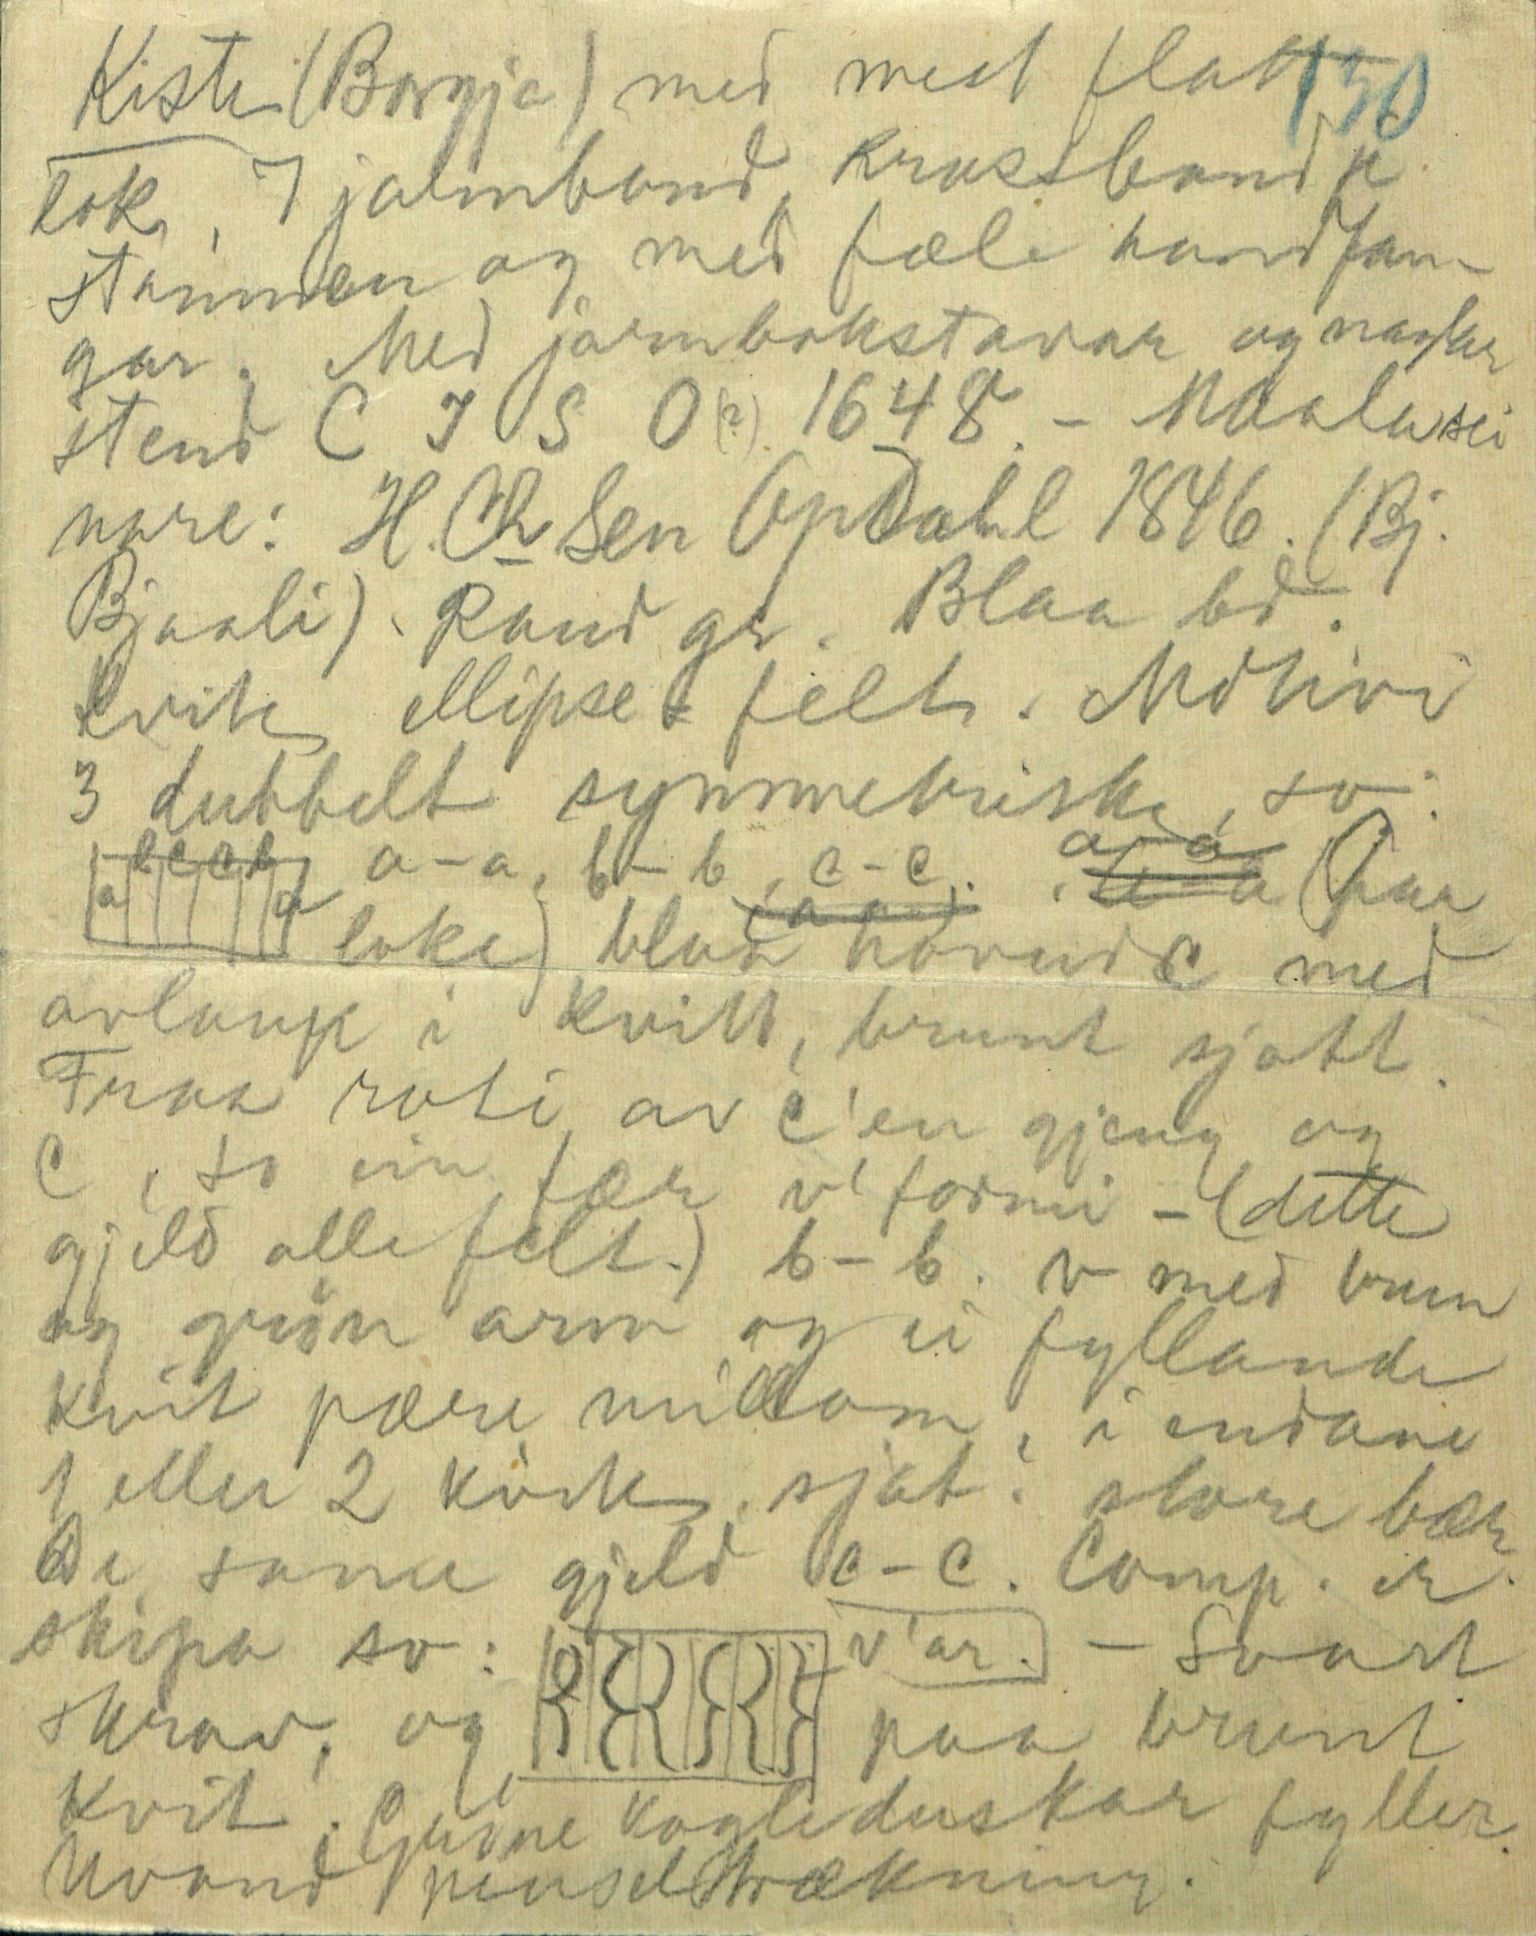 Kiste (Borgja) med mest flatt 150
lok, 7 jarnband, krossband p
stammen og med fæle handfan-
gar. Med jarnbokstavar og naglar
stend C I S O(?) 1648. - Maala sei
nare: H. Ch Sen Opdahl 1846. (Bj.
Bjaali). Rand gr. Blaa bd.
kvite ellipse felt. Motivi
3 dubbelt symmetriske, so:
a b c c b a a-a, b-b, c-c. a-a (paa
loke) blaa hovud C med
avlaup i kvitt, brunt sjatt.
Fraa roti av C'en gjeng og
C, so ein fær v'formi - (dette
gjeld alle felt.) b-b. v med brun
og grön arm og ei fyllande
kvit pære millom, i endane
1 eller 2 kvite, sjat. store bær
De same gjeld c-c. Comp. er
skipa so: v'ar. - Svart
skrav, og paa brunt
kvit. Gröne kogleduskar fyller.
Uvand penseltrækning.